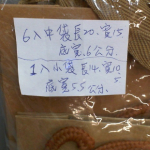 6入中袋長20.寬15
底寬.6公分.
1入小袋長14.寬10.5
底寬5.5公分.